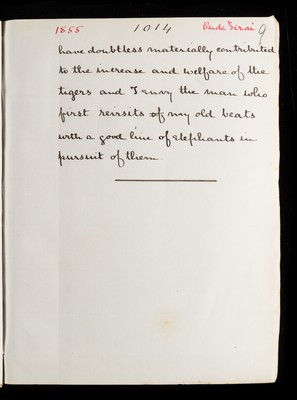 1885 1014 Rude Terai 9
have doubtless materially contributed
to the increase and welfare of the
tigers and I envy the man who
first revisits of my old beats
with a good line of elephants in
pursuit of them.